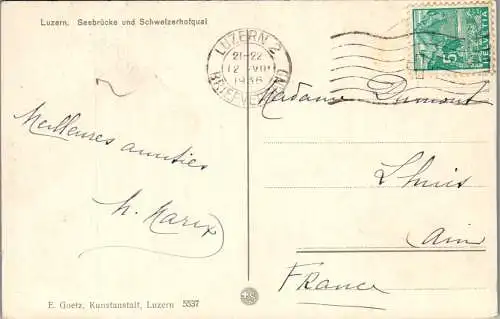 Luzern, Seebrücke und Schweizerhofquai
LUZERN 2
21-22
12.VII
1936
BRIEFVERSAND
5
HELVETIA
Meilleures amitiés
Madame Dumont
Ain
France
E. Goetz, Kunstanstalt, Luzern 5537